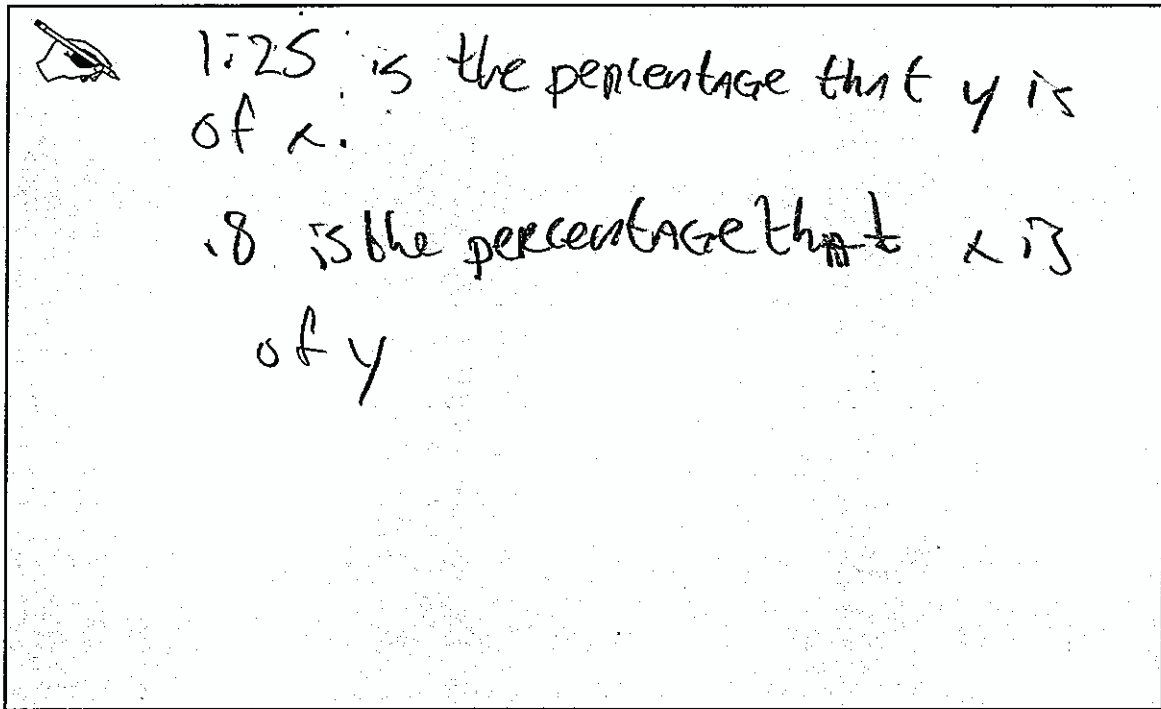 1.25 is the percentage that y is
of x.
.8 is the percentage that x is
of y